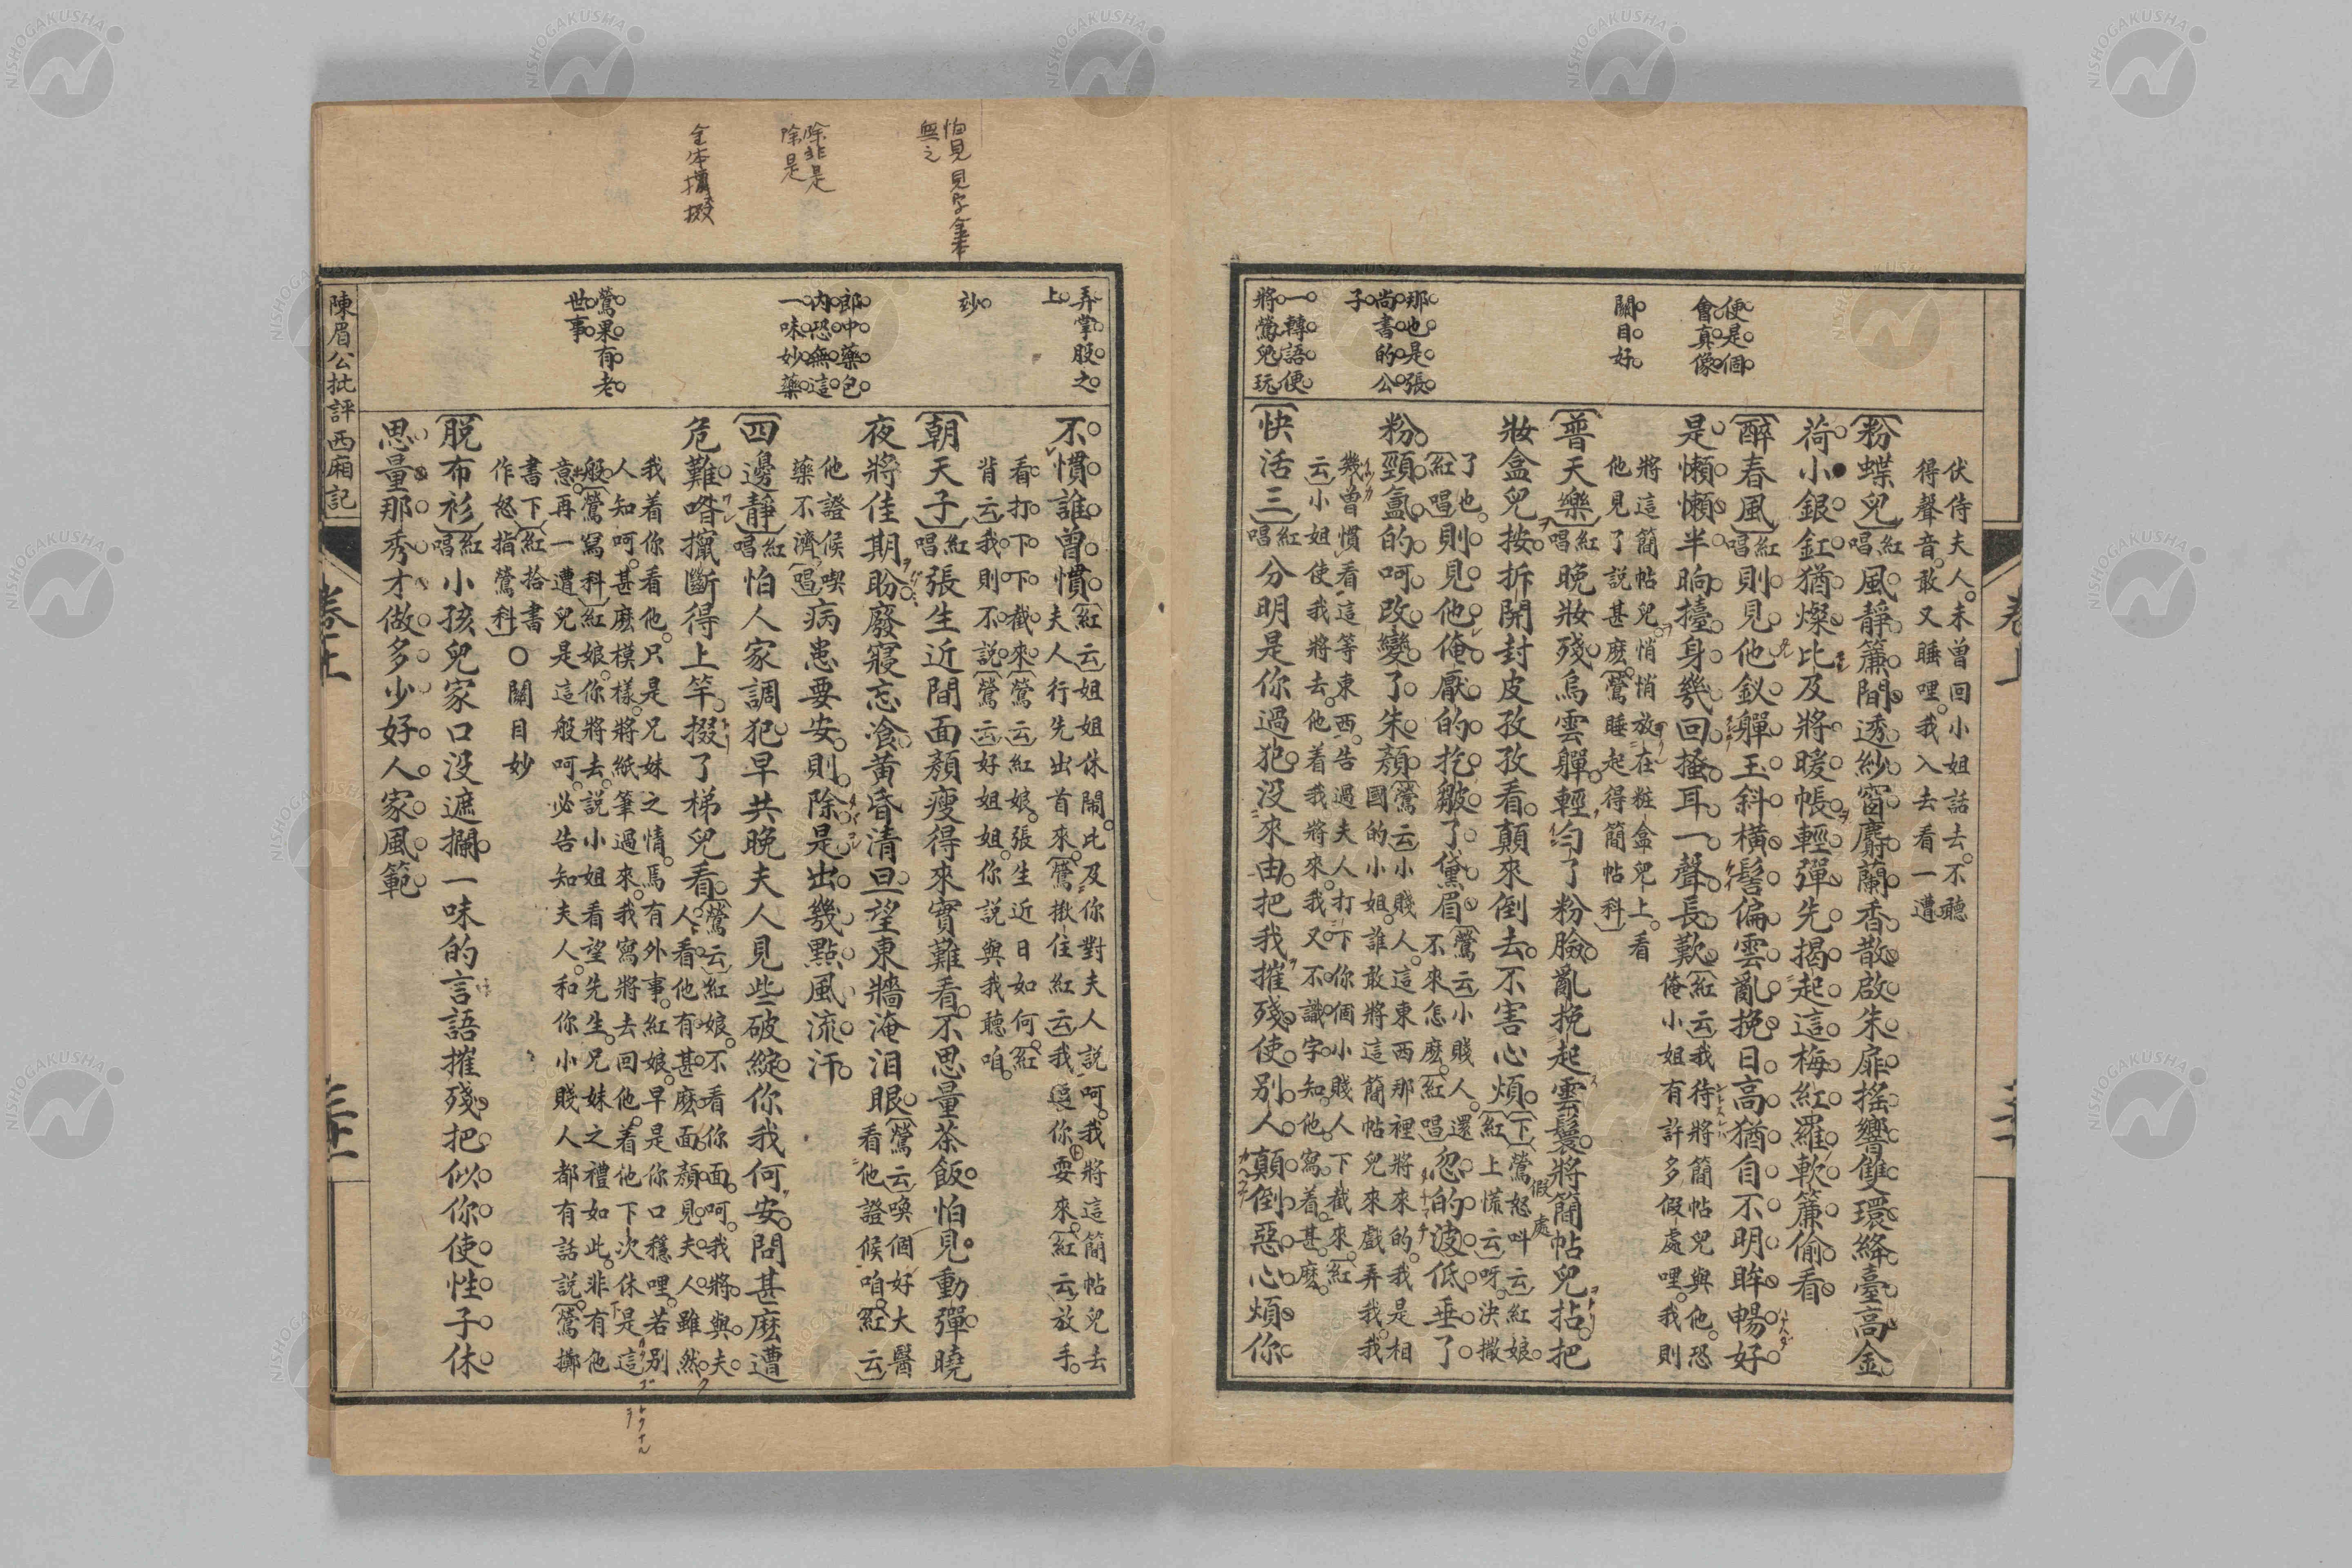 便是個
會真像
關目好
那也是張
尚書的公
子
一轉語便
將鶯兒玩
伏侍夫人未曾回小姐話去不聽
得聲音敢又睡哩我入去看一遭
粉蝶兒 紅唱 風靜簾間透紗窗麝蘭香散啟朱扉搖響雙環絳臺高金
荷小銀釭猶燦比及將暖帳輕彈先揭起這梅紅羅軟簾偷看
醉春風 紅唱 則見他釵軃玉斜橫髻偏雲亂挽日高猶自不明眸暢好
是懶懶半晌擡身幾回搔耳一聲長歎 紅云我待將簡帖兒與他恐
俺小姐有許多假處哩我則
將這簡帖兒悄悄放在粧盒兒上看
他見了說甚麽 鶯睡起得簡帖科
普天樂 紅唱 晚妝殘烏雲軃輕勻了粉臉亂挽起雲鬟將簡帖兒拈把
妝盒兒按拆開封皮孜孜看顛來倒去不害心煩 下 鶯怒叫云紅娘
紅上慌云呀決撒
了也
紅唱 則見他俺厭的扢皺了黛眉 鶯云小賤人還
不來怎麽 紅唱 忽的波低垂了
粉頸氳的呵改變了朱顏 鶯云小賤人這東西那裡將來的我是相
國的小姐誰敢將這簡帖兒來戲弄我我
幾曾慣看這等東西告過夫人打下你個小賤人下截來 紅
云小姐使我將去他着我將來我又不識字知他寫着甚麽
快活三 紅唱 分明是你過犯没來由把我摧殘使別人顛倒惡心煩你
弄掌股之
上
妙
郎中藥包
内恐無這
一味妙藥
鶯果有老
世事
不慣誰曾慣 紅云姐姐休鬧比及你對夫人説呵我將這簡帖兒去
夫人行先出首來 鶯揪住紅云我逗你耍來 紅云放手
看打下下截來 鶯云紅娘張生近日如何 紅
背云我則不説 鶯云好姐姐你説與我聽咱
朝天子 紅唱 張生近間面顏瘦得來實難看不思量茶飯怕見動彈曉
夜將佳期盼廢寢忘飡黃昏清旦望東牆淹泪眼 鶯云喚個好大醫
看他證候咱 紅云
他證候喫
藥不濟 唱 病患要安則除是出幾點風流汗
四邊靜 紅唱 怕人家調犯早共晚夫人見些破綻你我何安問甚麽遭
危難喒攛斷得上竿掇了梯兒看 鶯云紅娘不看你面呵我將與夫
人看他有甚麽面顏見夫人雖然
我着你看他只是兄妹之情焉有外事紅娘早是你口穩哩若別
人知呵甚麽模樣將紙筆過來我寫將去回他着他下次休是這
般 鶯寫科 紅娘你將去説小姐看望先生兄妹之禮如此非有他
意再一遭兒是這般呵必告知夫人和你小賤人都有話説 鶯擲
書下 紅拾書
作怒指鶯科
○關目妙
脱布衫 紅唱 小孩兒家口没遮攔一味的言語摧殘把似你使性子休
思量那秀才做多少好人家風範
陳眉公批評西廂記
卷上
怕見見字金本
無之
除非是
除是
全本攛掇
NISHOGAKUSHA